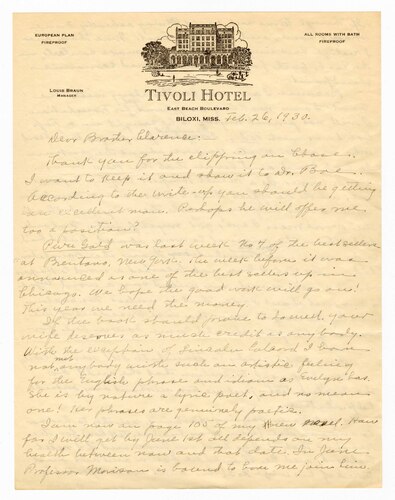 EUROPEAN PLAN
FIREPROOF
ALL ROOMS WITH BATH
FIREPROOF
LOUIS BRAUN
MANAGER
TIVOLI HOTEL
EAST BEACH BOULEVARD
BILOXI, MISS. Feb. 26, 1930.
Dear Brother Clarence:
Thank you for the clipping on Chase.
I want to keep it and show it to Dr. Boe.
According to the write-up you should be getting
an excellent man. Perhaps he will offer me
too a position?
Pure Gold was last week No 7 of the best sellers
at Brentano, New York. The week before it was
announced as one of the best sellers up in
Chicago. We hope the good work will go on!
This year we need the money.
If the book should prove to succeed, your
wife deserves as much credit as anybody.
With the exception of Lincoln Colcord I know
not anybody with such an artistic feeling
for the English phrase and idiom as Evelyn has.
She is by nature a lyric poet, and no mean
one! Her phrases are genuinely poetic.
I am now on page 105 of my new novel. How
far I will get by June 1st all depends on my
health between now and that date. In June
Professor Morison is bound to have me join him